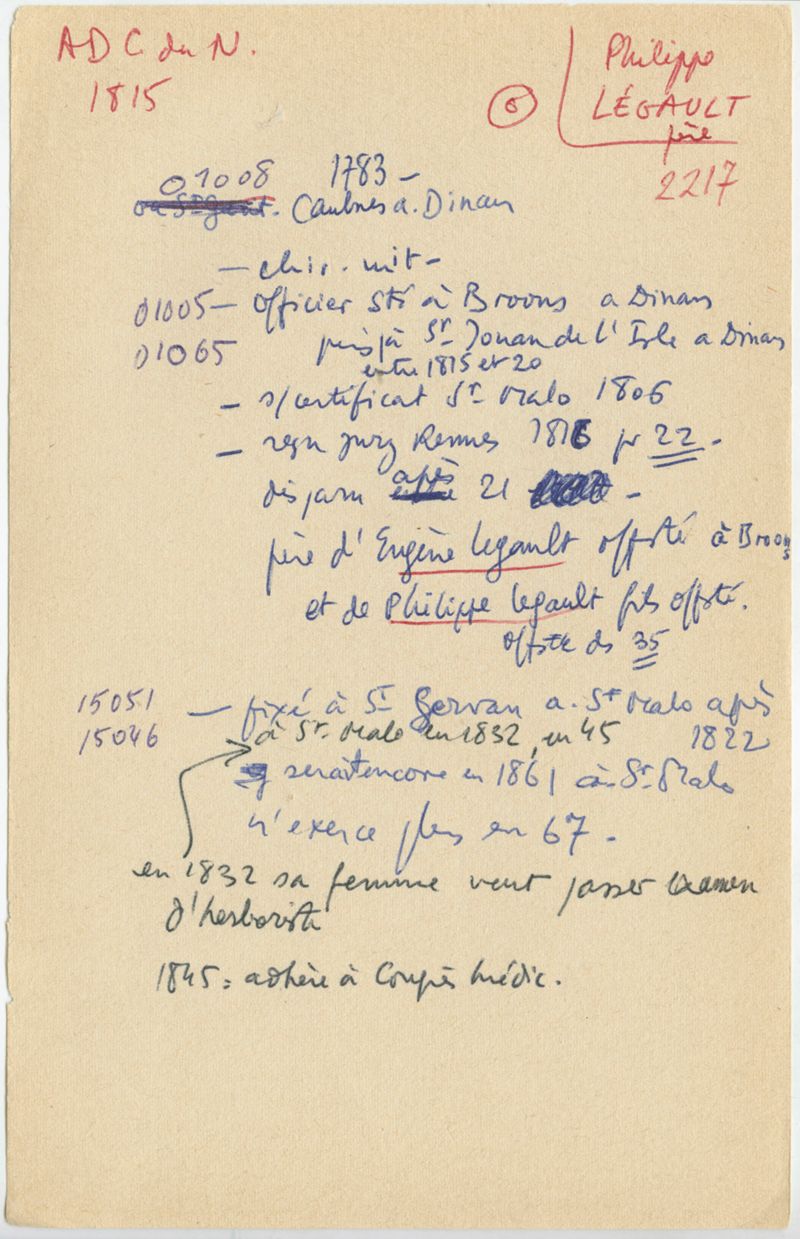 A D C. du N.
1815
6
Philippe
LÉGAULT
père
2217
01008 1783 –
Caulnes a. Dinan
– chir. mil –
01005 – Officier Sté à Broons a Dinan
01065 puis à St Jouan de l'Isle a Dinan
entre 1815 et 20
– s/certificat St Malo 1806
– reçu jury Rennes 1816 pr 22 –
disparu après 21 –
père d'Eugène Legault offsté à Broons
et de Philippe Legault fils offsté.
offste ds 35
15051 – fixé à St Servan a. St Malo après
15046 à St Malo en 1832, en 45 1822
serait encore en 1861 à St Malo
n'exerce plus en 67 .
en 1832 sa femme veut passer examen
d'herboriste
1845 = adhère à Congrès médic.